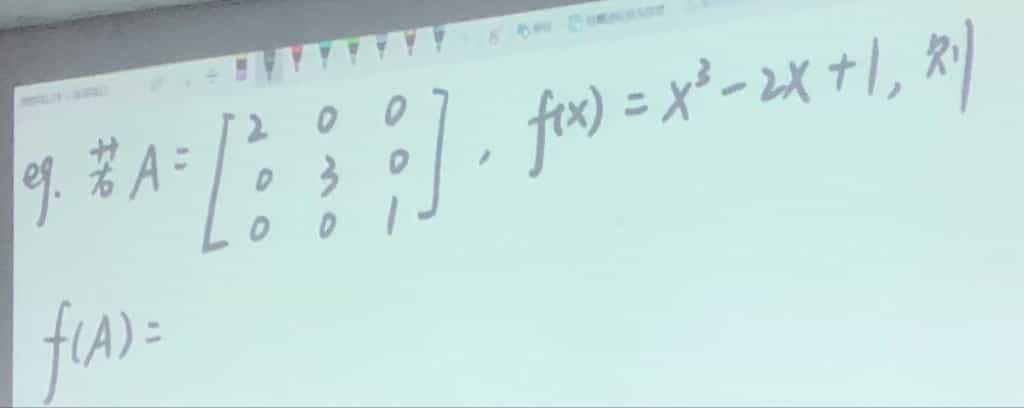 eg. 若 A = [2 0 0
0 3 0
0 0 1], f(x) = x³ - 2x + 1, 则
f(A) =